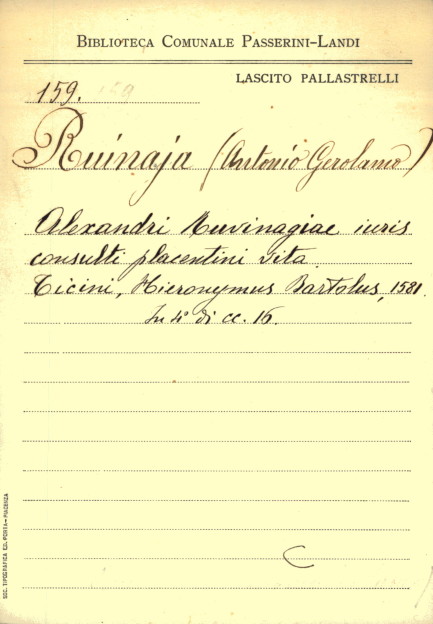 BIBLIOTECA COMUNALE PASSERINI-LANDI
LASCITO PALLASTRELLI
159. 159
Ruinaja (Antonio Gerolamo)
Alexandri Ruvinagiae iuris
consulti placentini vita.
Ticini, Hieronymus Bartolus, 1581.
In 4° di cc. 16.
C
SOC. TIPOGRAFICA ED. PORTA-PIACENZA